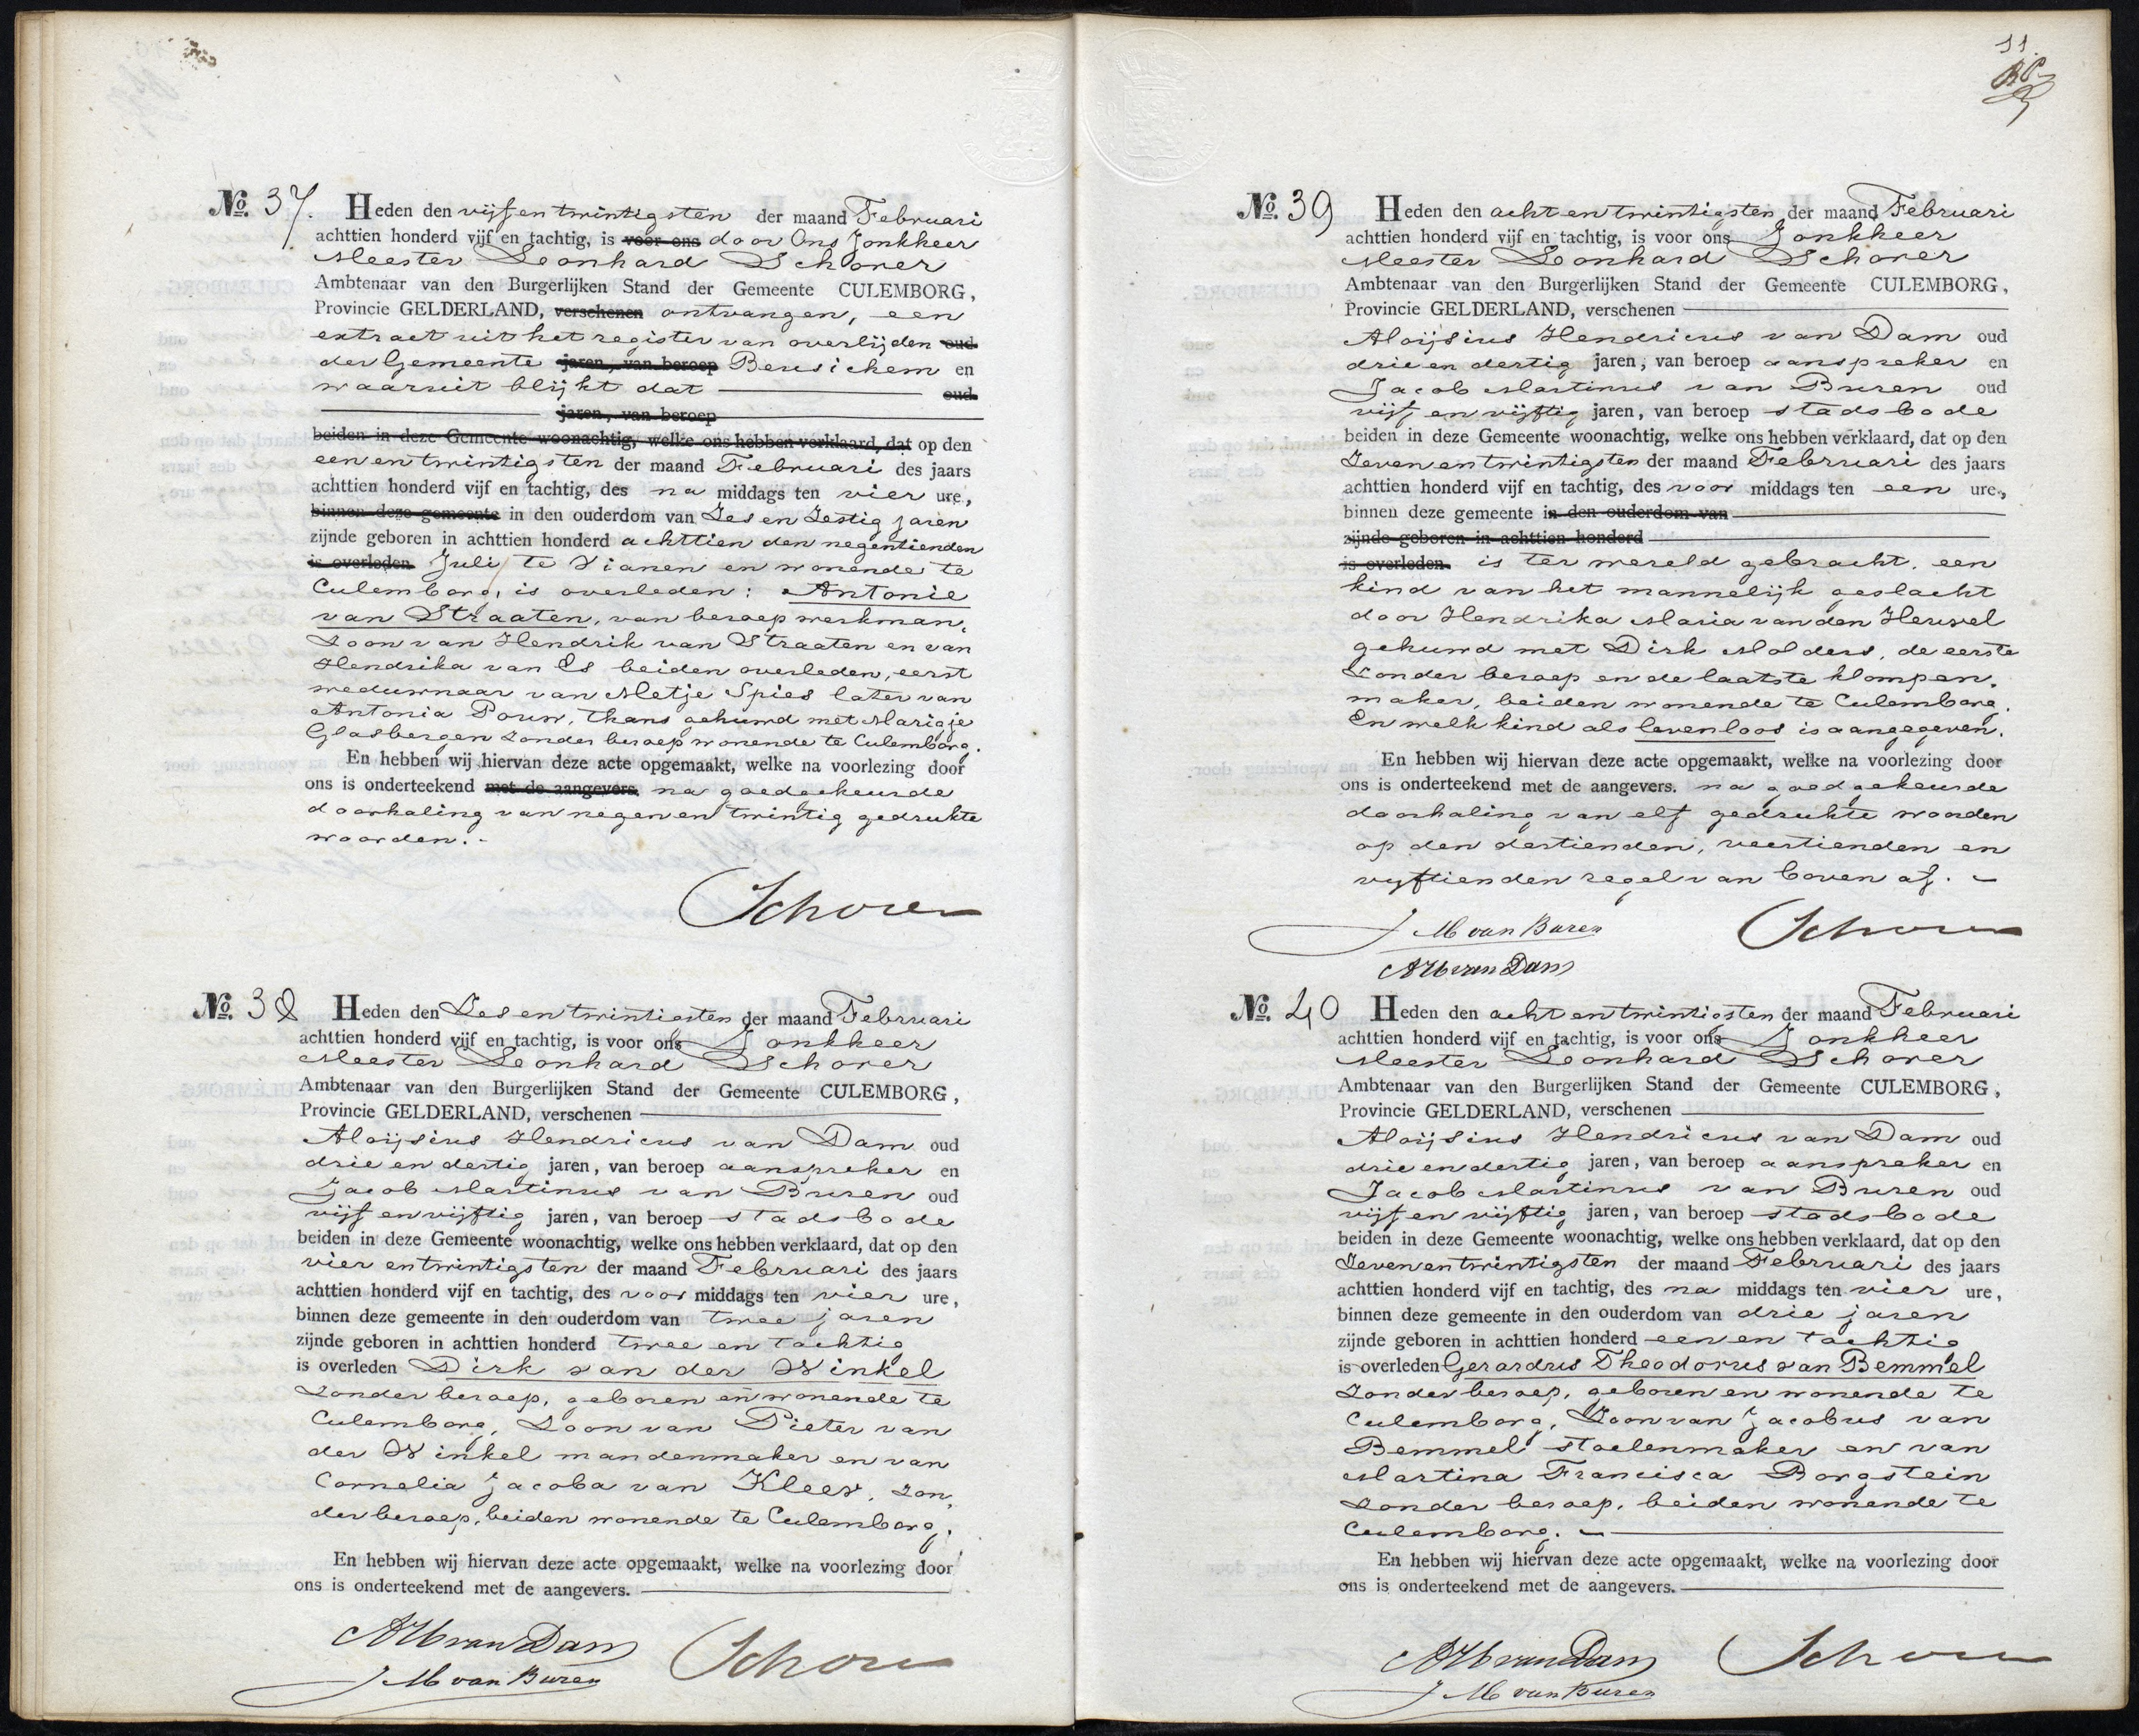 No. 37. Heden den vijf en twintigsten der maand Februari
achttien honderd vijf en tachtig, is voor ons door Ons Jonkheer
Meester Leonhard Schorer
Ambtenaar van den Burgerlijken Stand der Gemeente CULEMBORG,
Provincie GELDERLAND, verschenen ontvangen, een
extract uit het register van overlijden oud
der Gemeente jaren, van beroep Beusichem en
waaruit blijkt dat oud
jaren, van beroep
beiden in deze Gemeente woonachtig, welke ons hebben verklaard, dat op den
een en twintigsten der maand Februari des jaars
achttien honderd vijf en tachtig, des na middags ten vier ure,
binnen deze gemeente in den ouderdom van Zes en Zestig jaren
zijnde geboren in achttien honderd achttien den negentienden
is overleden Juli te Vianen en wonende te
Culemborg, is overleden: Antonie
van Straaten, van beroep werkman,
Zoon van Hendrik van Straaten en van
Hendrika van Es beiden overleden, eerst
weduwnaar van Metje Spies later van
Antonia Pouw, thans gehuwd met Marigje
Glasbergen zonder beroep wonende te Culemborg.
En hebben wij hiervan deze acte opgemaakt, welke na voorlezing door
ons is onderteekend met de aangevers. na goedgekeurde
doorhaling van negen en twintig gedrukte
woorden.
Schorer
No. 38 Heden den Zes en twintigsten der maand Februari
achttien honderd vijf en tachtig, is voor ons Jonkheer
Meester Leonhard Schorer
Ambtenaar van den Burgerlijken Stand der Gemeente CULEMBORG,
Provincie GELDERLAND, verschenen
Aloijsius Hendricus van Dam oud
drie en dertig jaren, van beroep aanspreker en
Jacob Martinus van Buren oud
vijf en vijftig jaren, van beroep stadsbode
beiden in deze Gemeente woonachtig, welke ons hebben verklaard, dat op den
vier en twintigsten der maand Februari des jaars
achttien honderd vijf en tachtig, des voor middags ten vier ure,
binnen deze gemeente in den ouderdom van twee jaren
zijnde geboren in achttien honderd twee en tachtig
is overleden Dirk van der Winkel
zonder beroep, geboren en wonende te
Culemborg, Zoon van Pieter van
der Winkel mandenmaker en van
Cornelia Jacoba van Kleef, zon,
der beroep, beiden wonende te Culemborg.
En hebben wij hiervan deze acte opgemaakt, welke na voorlezing door
ons is onderteekend met de aangevers.
AH van Dam Schorer
J M van Buren
11.
No. 39 Heden den acht en twintigsten der maand Februari
achttien honderd vijf en tachtig, is voor ons Jonkheer
Meester Leonhard Schorer
Ambtenaar van den Burgerlijken Stand der Gemeente CULEMBORG,
Provincie GELDERLAND, verschenen
Aloijsius Hendricus van Dam oud
drie en dertig jaren, van beroep aanspreker en
Jacob Martinus van Buren oud
vijf en vijftig jaren, van beroep stadsbode
beiden in deze Gemeente woonachtig, welke ons hebben verklaard, dat op den
Zeven en twintigsten der maand Februari des jaars
achttien honderd vijf en tachtig, des voor middags ten een ure,
binnen deze gemeente in den ouderdom van
zijnde geboren in achttien honderd
is overleden. is ter wereld gebracht, een
kind van het mannelijk geslacht
door Hendrika Maria van den Heuvel
gehuwd met Dirk Molders, de eerste
zonder beroep en de laatste klompen,
maker, beiden wonende te Culemborg.
En welk kind als levenloos is aangegeven.
En hebben wij hiervan deze acte opgemaakt, welke na voorlezing door
ons is onderteekend met de aangevers. na goedgekeurde
doorhaling van elf gedrukte woorden
op den dertienden, veertienden en
vijftienden regel van boven af.
J M van Buren Schorer
AH van Dam
No. 40 Heden den acht en twintigsten der maand Februari
achttien honderd vijf en tachtig, is voor ons Jonkheer
Meester Leonhard Schorer
Ambtenaar van den Burgerlijken Stand der Gemeente CULEMBORG,
Provincie GELDERLAND, verschenen
Aloijsius Hendricus van Dam oud
drie en dertig jaren, van beroep aanspreker en
Jacob Martinus van Buren oud
vijf en vijftig jaren, van beroep stadsbode
beiden in deze Gemeente woonachtig, welke ons hebben verklaard, dat op den
Zeven en twintigsten der maand Februari des jaars
achttien honderd vijf en tachtig, des na middags ten vier ure,
binnen deze gemeente in den ouderdom van drie jaren
zijnde geboren in achttien honderd een en tachtig
is overleden Gerardus Theodorus van Bemmel
zonder beroep, geboren en wonende te
Culemborg, Zoon van Jacobus van
Bemmel stoelenmaker en van
Martina Francisca Borgstein
zonder beroep, beiden wonende te
Culemborg.
En hebben wij hiervan deze acte opgemaakt, welke na voorlezing door
ons is onderteekend met de aangevers.
AH van Dam Schorer
J M van Buren